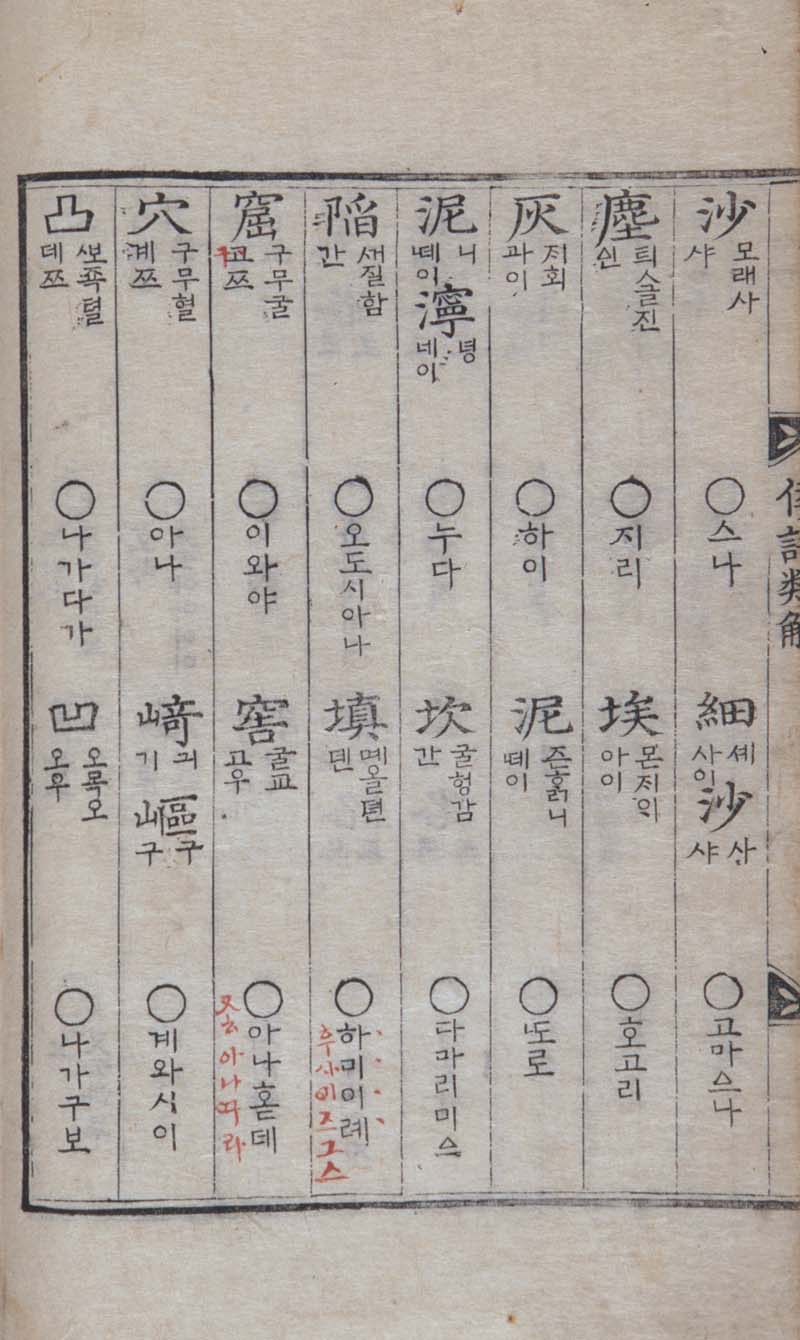 沙 모래사 샤 ○스나
細 셰 사이 沙 사 샤 ○고마스나
塵 틔ᄭᅳᆯ진 쉰 ○지리
埃 몬지ᄋᆡ 아이 ○호고리
灰 ᄌᆡ회 과이 ○하이
泥 즌흙니 떼이 ○도로
泥 니 떼이 濘 녕 네이 ○누다
坎 굴헝감 간 ○다마리미스
陷 ᄲᅡ질함 간 ○오도시아나
塡 몌올뎐 뎐 ○하미이례 후사이즈그스
窟 구무굴 교쯔 ○이와야
窖 굴교 고우 ○아나홀데 又云아나따라
穴 구무혈 계쯔 ○아나
崎 긔 기 嶇 구 구 ○계와시이
凸 ᄲᅩ죡텰 데쯔 ○나가다가
凹 오목오 오우 ○나가구보
倭語類解